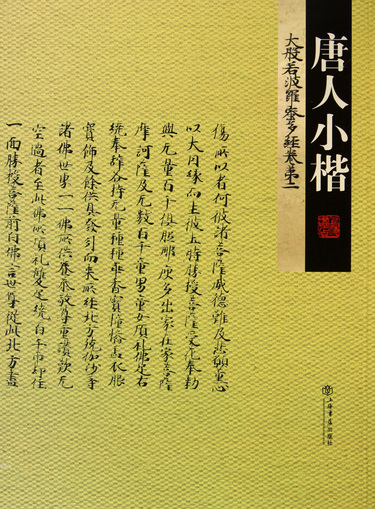 唐人小楷
大般若波羅蜜多經卷第二
傷所以者何彼諸菩薩威德難及悲願熏心
以大因緣而生彼土時勝授菩薩受花奉勅
與无量百千俱胝那庾多出家在家菩薩
摩訶薩及无數百千童男童女頂礼佛足右
繞奉辭各持无量種種花香寶幢幡蓋衣服
寶飾及餘供具發引而來所經北方殑伽沙等
諸佛世界一一佛所供養恭敬尊重讚歎无
空過者至此佛所頂礼雙足繞百千帀却住
一面勝授菩薩前白佛言世尊從此北方盡
上海書店出版社